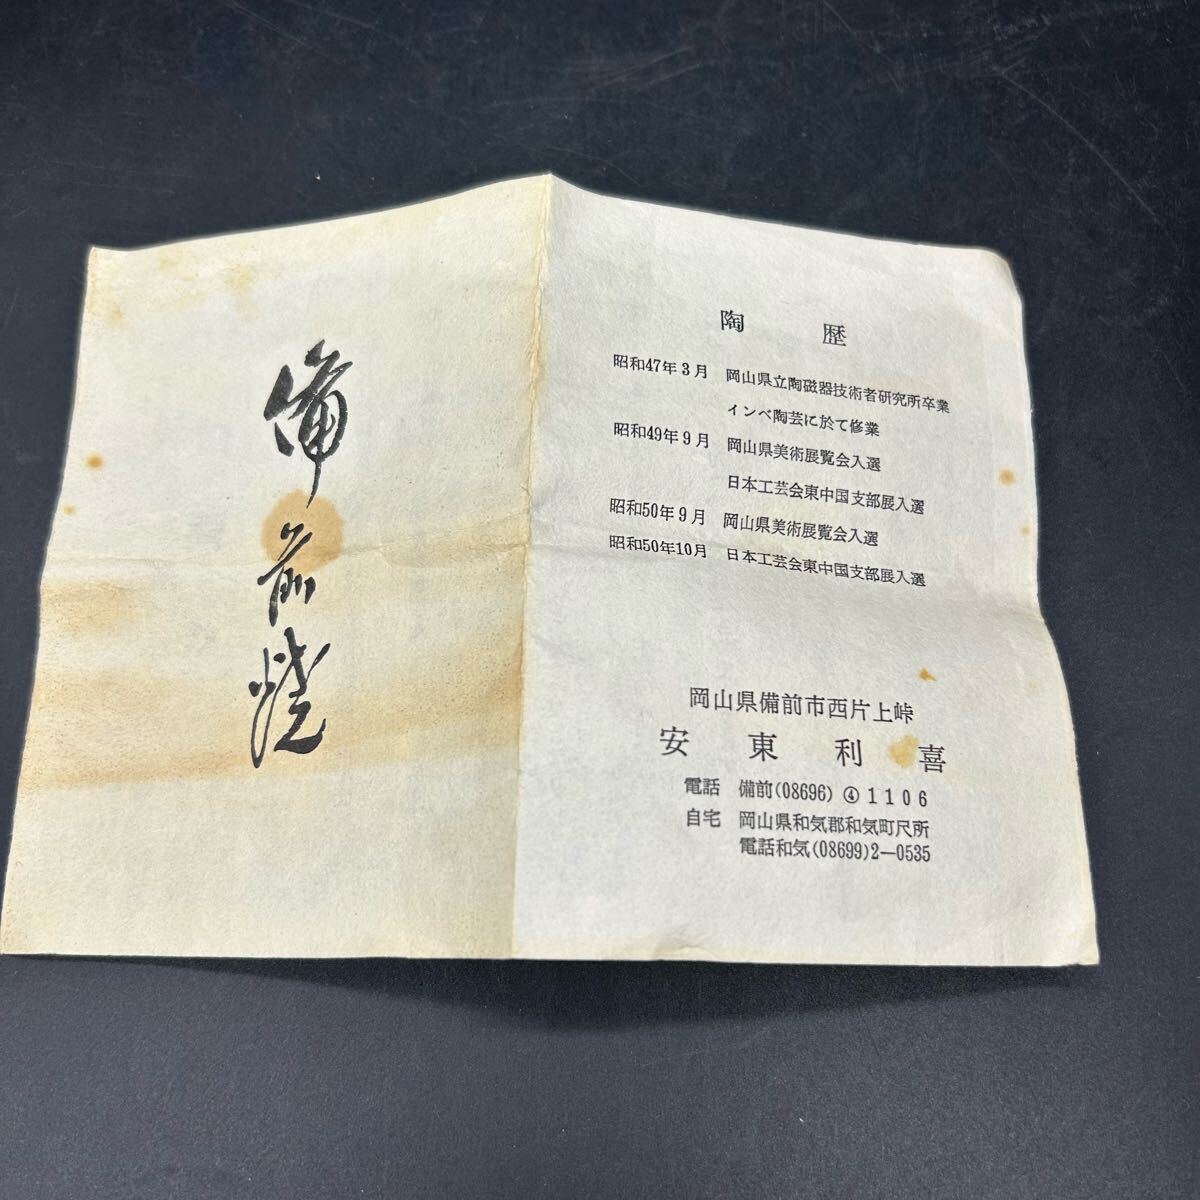 備前焼
陶歴
昭和47年3月 岡山県立陶磁器技術者研究所卒業
インベ陶芸に於て修業
昭和49年9月 岡山県美術展覧会入選
日本工芸会東中国支部展入選
昭和50年9月 岡山県美術展覧会入選
昭和50年10月 日本工芸会東中国支部展入選
岡山県備前市西片上峠
安東利喜
電話 備前(08696)④1106
自宅 岡山県和気郡和気町尺所
電話和気(08699)2―0535